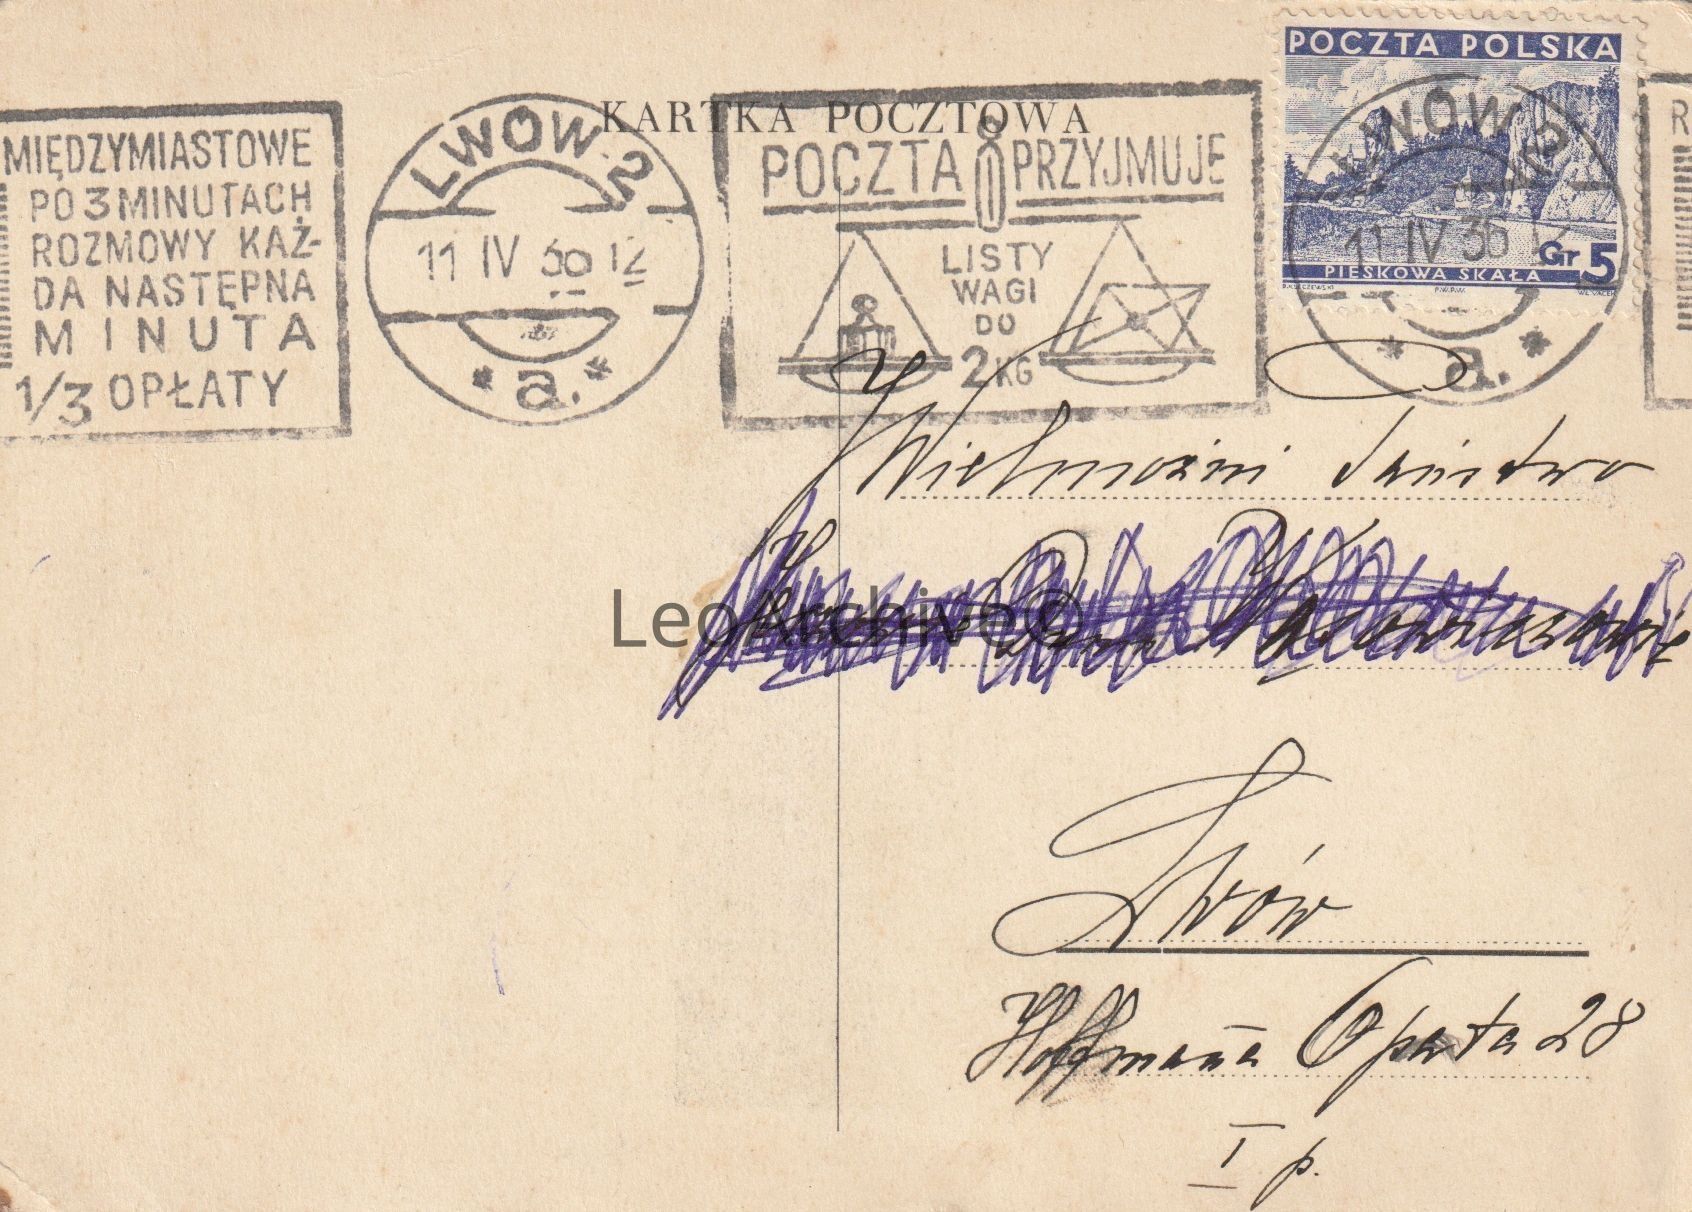 KARTKA POCZTOWA
MIĘDZYMIASTOWE
PO 3 MINUTACH
ROZMOWY KAŻ-
DA NASTĘPNA
MINUTA
1/3 OPŁATY
LWÓW 2
11 IV 36 12
* a. *
POCZTA PRZYJMUJE
LISTY
WAGI
DO
2 KG
POCZTA POLSKA
PIESKOWA SKAŁA
Gr 5
P.W.P.W.
LWÓW 2
11 IV 36
* a. *
R
Wielmożni Państwo
LeoArchive©
Lwów
Hoffmana Opata 28
I p.